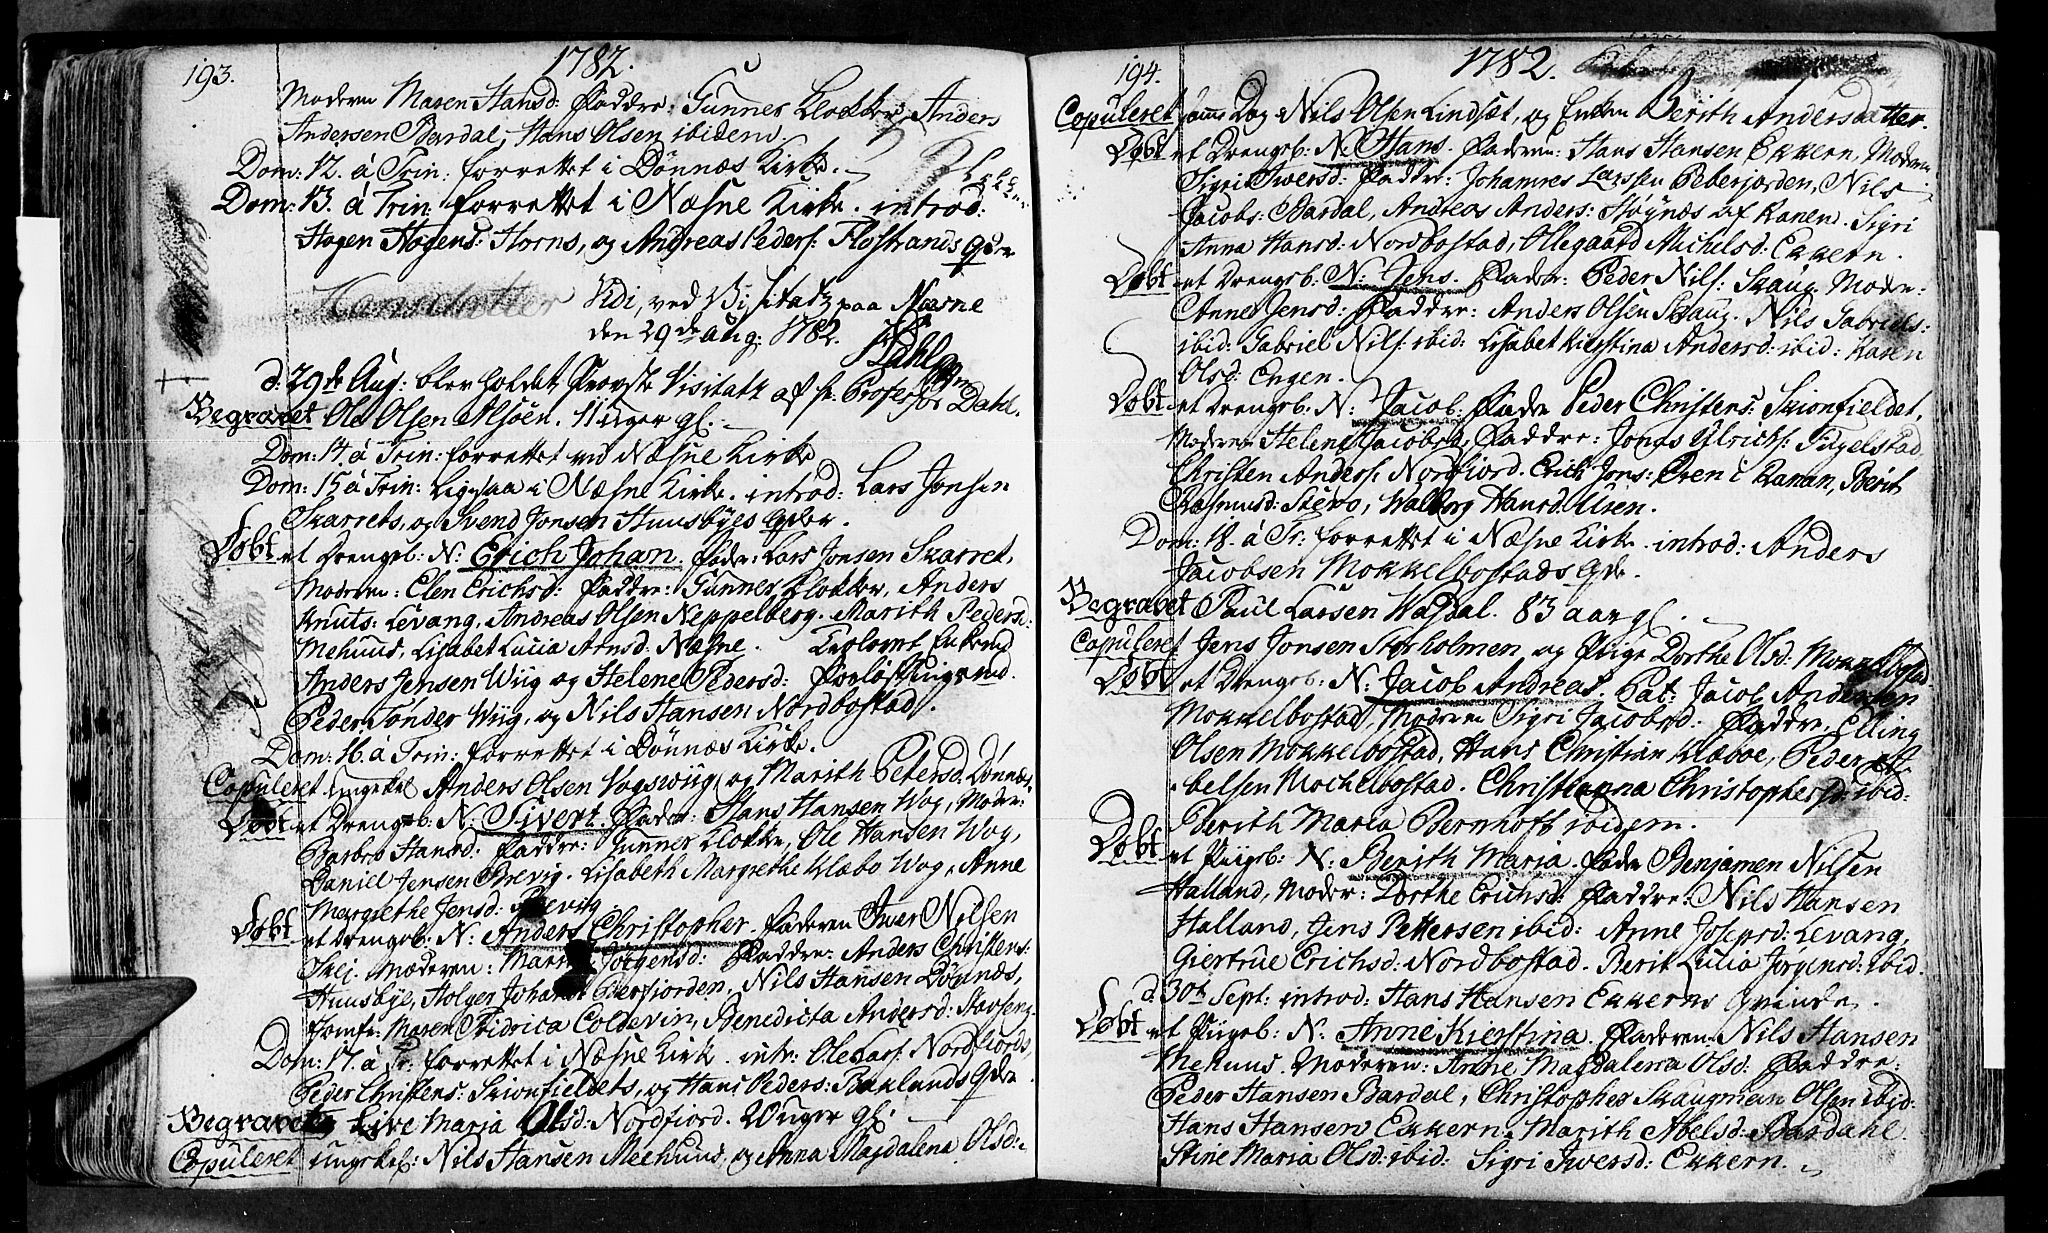 193.
1782.
Moderen Maren Hansd: Faddre: Gunner Klokker, Anders
Andersen Bardal, Hans Olsen ibidem.
Dom: 12. á Trin: forrettet i Dönnæs Kirke.
Dom: 13. á Trin: forrettet i Næsne Kirke. introd:
Hagen Hagens: Horns, og Andreas Peders: Flostrands Qdr
Hansdatter
Vidi, ved Visitatz paa Næsne
den 29de Aug: 1782.
Dahl
d: 29de Aug: blev holdet Provste Visitatz af hr. Professor Dahl.
Begravet Ole Olsen Alsöen. 11 uger gl.
Dom: 14 á Trin: forrettet ved Næsne Kirke
Dom: 15 á Trin: Ligesaa i Næsne Kirke. introd: Lars Jonsen
Skarrets, og Svend Jonsen Huusbyes Qdr.
Döbt et Drengeb: N: Erich Johan. Fader: Lars Jonsen Skarret,
Moderen: Elen Erichsd: Faddre: Gunner Klokker, Anders
Knuts: Levang, Andreas Olsen Neppelberg. Marith Pedersd:
Mehuus, Lisabet Lucia Arnsd: Næsne. Trolovet Enkemd
Anders Jensen Wiig og Helene Pedersd: Forlöftningsmd.
Peder Tönder Wiig, og Nils Hansen Nordbostad.
Dom: 16. á Trin: forrettet i Dönnæs Kirke.
Copuleret Ungekel Anders Olsen Vogswiig, og Marith Petersd. Dönnæs
Döbt et Drengeb: N: Sivert. Fader: Hans Hansen Wog, Moder:
Barbro Hansd: Faddre: Gunner Klokker, Ole Hansen Wog,
Daniel Jensen Brevig. Lisabeth Margrethe Klæbo Wog, Anne
Margrethe Jensd: Brevig.
Döbt et Drengeb: N: Anders Christopher. Faderen Iver Nilsen
Skei. Moderen: Maren Jörgensd: Faddre: Anders Christens:
Huusbye, Holger Johan Eberfiorden, Nils Hansen Dönnæs,
Jomfr: Maren Fridrica Coldevin, Benedicta Andersd:
Dom: 17. á Tr: forrettet i Næsne Kirk. intr: Ole Lars: Nordfiords,
Peder Christens: Skionfieldets, og Hans Peders: Baklands Qdr.
Begravet Live Maria Olsd: Nordfiord. 20 uger gl.
Copuleret Ungekel: Nils Hansen Meehuus, og Anna Magdalena Olsd:
194.
1782.
Copuleret samme Dag Nils Olsen Lindsæt, og Enken Berith Andersdatter.
Döbt et Drengeb: N: Hans. Faderen: Hans Hansen Ekkern, Moderen
Sigri Iwersd: Faddre: Johannes Larssen Eeberfiorden, Nils
Jacobs: Bardal, Andreas Anders: Högnæs af Ranen. Sigri
Anna Hansd: Nordbostad, Ollegaard Michelsd: Ekkern.
Döbt et Drengeb: N: Jens. Fader: Peder Nils: Skaug. Moder:
Anne Jensd: Faddre: Anders Olsen Skaug. Nils Gabriels:
ibid: Gabriel Nils: ibid: Lisabet Kirstina Andersd: ibid: Karen
Olsd: Engen.
Döbt et Drengeb: N: Jacob: Fader Peder Christens: Skionfieldet,
Moderen Helene Jacobsd, Faddre: Jonas Ulrichs: Tigelstad
Christen Anders: Nordfiord. Erich Jons: Even i Ranan, Berit
Rasmusd: Stewo, Walborg Hansd: Ulsen.
Dom: 18. á Tr: forrettet i Næsne Kirk. introd: Anders
Jacobsen Mokkelbostads Qde.
Begravet Paul Larsen Wasdal. 83 aar gl.
Copuleret Jens Jonsen Storholmen og Piige Dorthe Olsd: Mokkelbostad.
Döbt et Drengeb: N: Jacob Andreas. Pat: Jacob Andersen
Mokkelbostad, Moderen Sigri Jacobsd: Faddre: Elling
Olsen Mokkelbostad, Hans Christian Klæboe, Peder El-
belsen Mochelbostad. Christianna Christophersd: ibid:
Berith Maria Bernhoft ibidem.
Döbt et Piigeb: N: Berith Maria. Fader Benjamen Nilsen
Halland, Moder: Dorthe Erichsd: Faddre: Nils Hansen
Halland, Jens Pettersen ibid: Anne Josepsd: Levang,
Giertrue Erichsd: Nordbostad. Berit Lucia Jörgensd: ibid.
d. 30te Sept: introd: Hans Hansen Ekkerns Qvinde.
Döbt et Piigeb: N: Anne Kierstina. Faderen Nils Hansen
Mehuus. Moderen: Anne Magdalena Olsd: Faddre:
Peder Hansen Bardal, Christopher Skaugman Olsen ibid:
Hans Hansen Ekkern. Marith Abelsd: Bardahl.
Stine Maria Olsd: ibid: Sigri Iwersd: Ekkern.